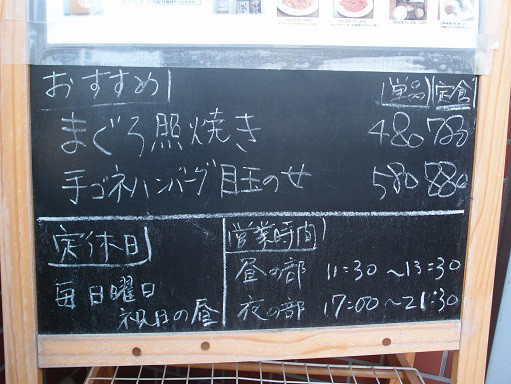 おすすめ
単品 定食
まぐろ照焼き 480 780
手ゴネハンバーグ目玉のせ 580 880
定休日
毎日曜日
祝日の昼
営業時間
昼の部 11:30～13:30
夜の部 17:00～21:30